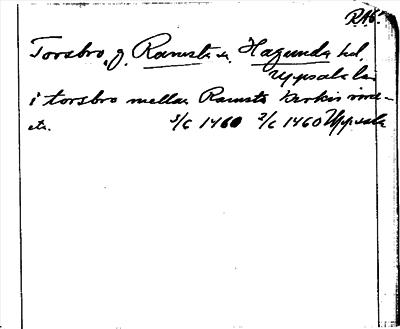 RA6.
Torsbro, g. Ramsta sn. Hagunda hd.
Uppsala län
i torsbro mellan Ramsta kirkio
etc. 3/6 1460 2/6 1460 Uppsala